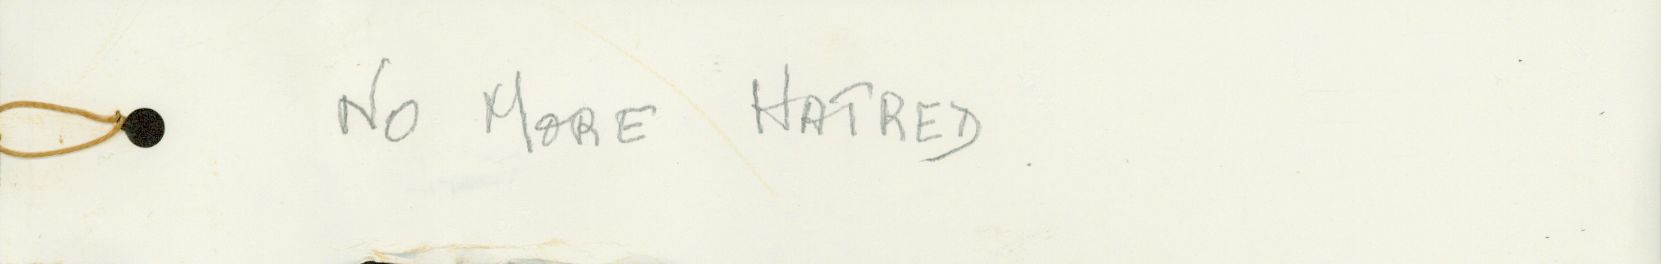 NO MORE HATRED